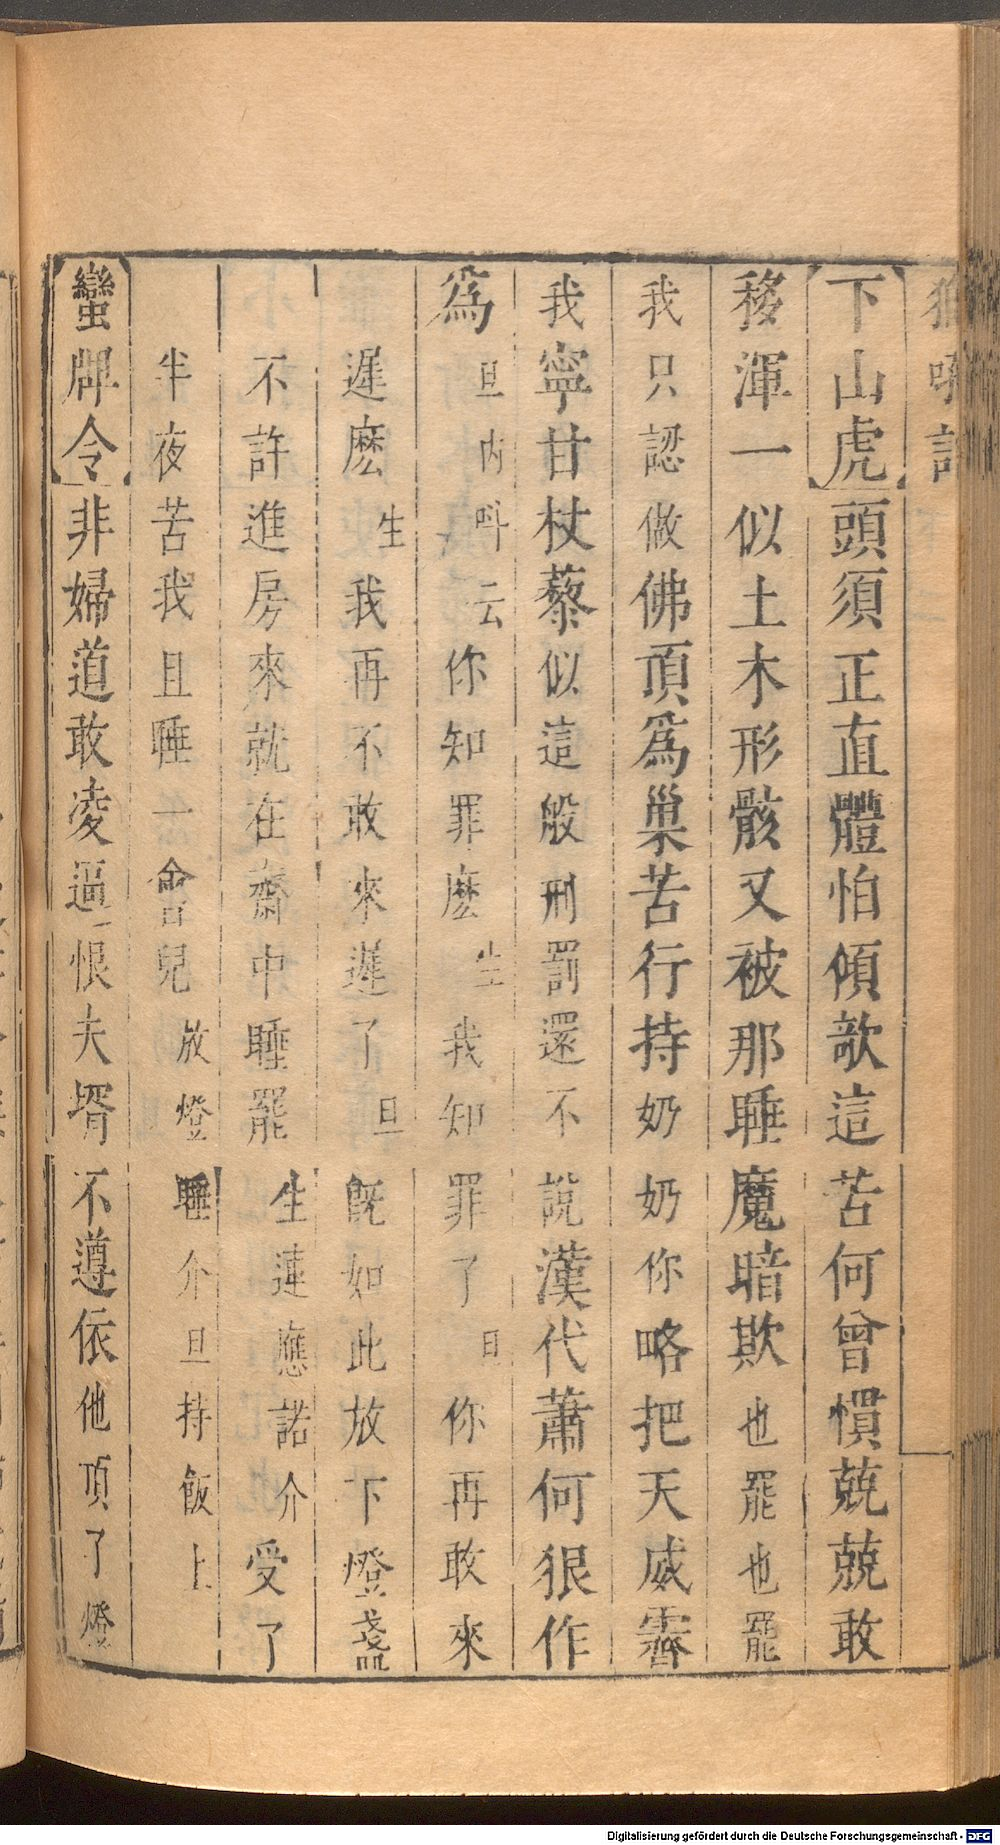 下山虎頭須正直體怕傾欹這苦何曾慣兢兢敢
移渾一似土木形骸又被那睡魔暗欺也罷也罷
我只認做佛頂爲巢苦行持奶奶你略把天威霽
我寧甘杖藜似這般刑罰還不說漢代蕭何狠作
爲旦内呌云你知罪麽生我知罪了旦你再敢來
遲麽生我再不敢來遲了旦旣如此放下燈盞
不許進房來就在齋中睡罷生連應諾介受了
半夜苦我且睡一會兒放燈睡介旦持飯上
蠻牌令非婦道敢凌逼恨夫壻不遵依他頂了燈
Digitalisierung gefördert durch die Deutsche Forschungsgemeinschaft - DFG